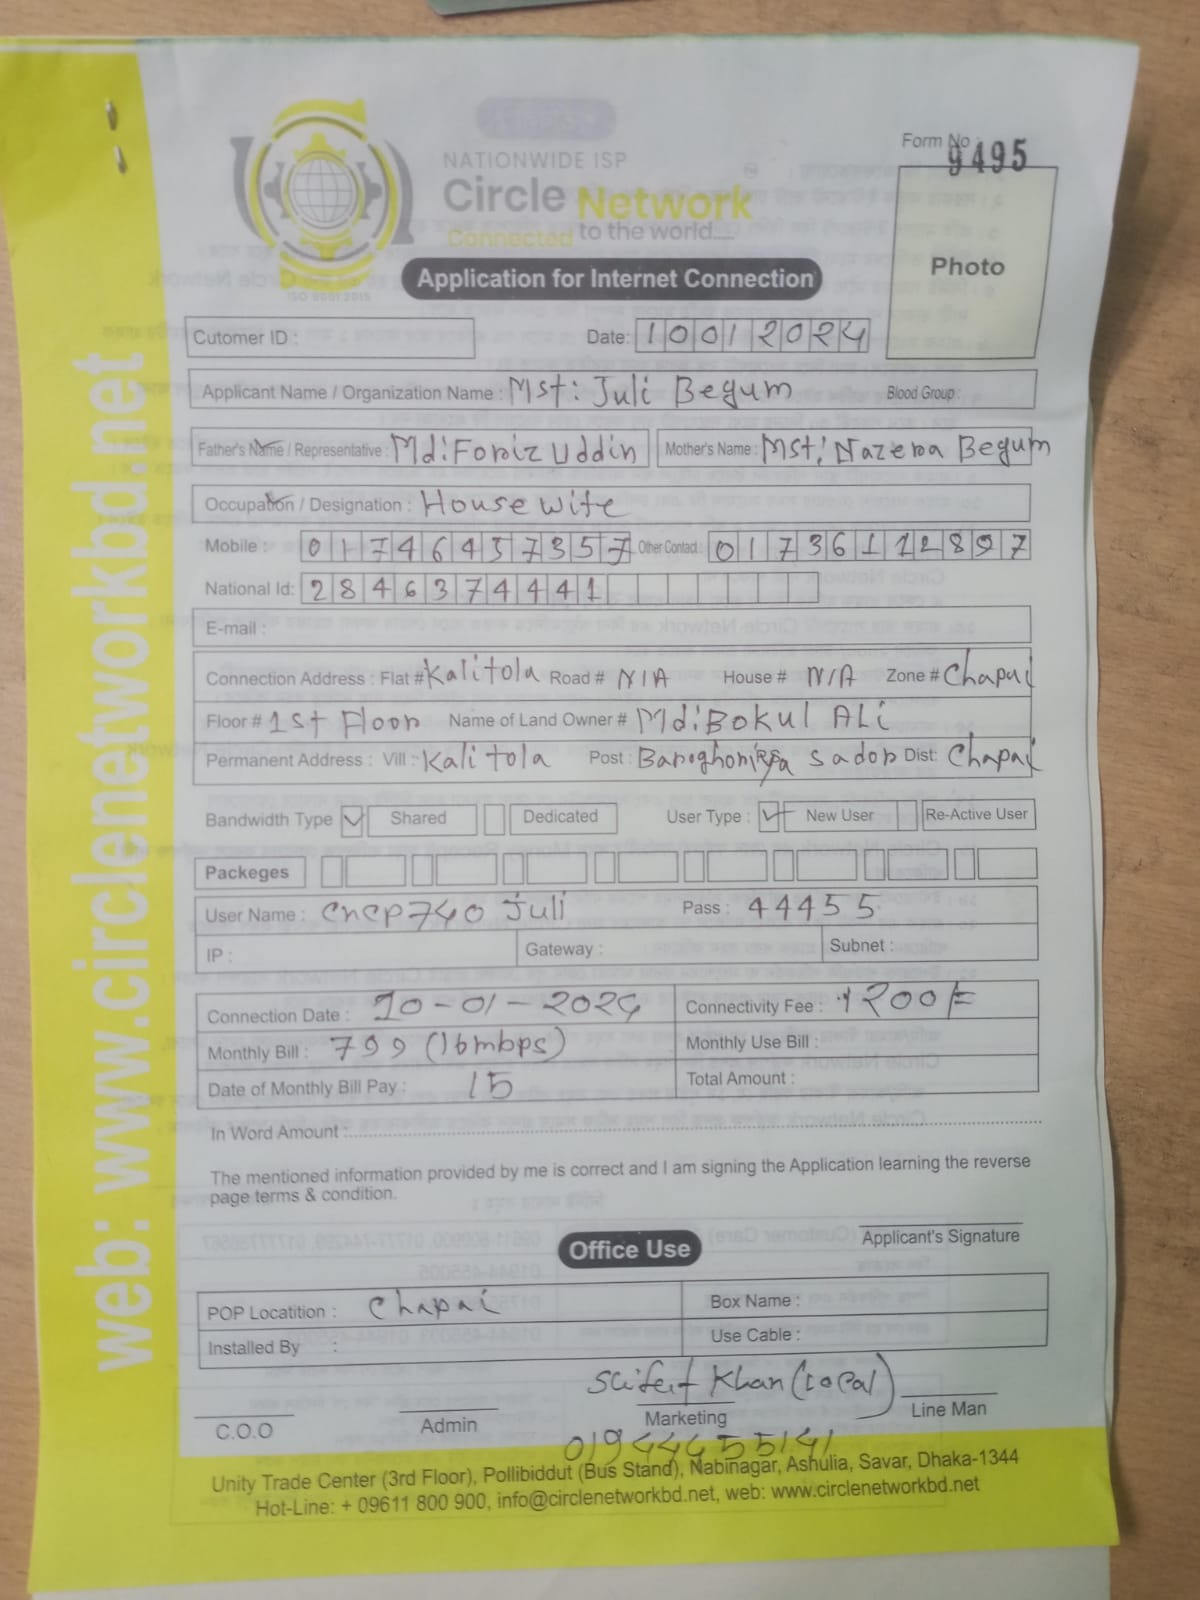 Form No 9495
NATIONWIDE ISP
Circle Network
Connected to the world.....
ISO 9001:2015
Application for Internet Connection
Photo
Cutomer ID : Date: 10012024
Applicant Name / Organization Name : Mst: Juli Begum Blood Group :
Father's Name / Representative : Md: Foriz Uddin Mother's Name : Mst: Nazera Begum
Occupation / Designation : House wife
Mobile : 01746457357 Other Contact : 01736112897
National Id: 2846374441
E-mail :
Connection Address : Flat # Kalitola Road # N/A House # N/A Zone # Chapai
Floor # 1st Floor Name of Land Owner # Md: Bokul ALi
Permanent Address : Vill : Kalitola Post : Sador Dist: Chapai
Bandwidth Type Shared Dedicated User Type : New User Re-Active User
Packeges
User Name : cncp740 Juli Pass : 44455
IP : Gateway : Subnet :
Connection Date : 10-01-2024 Connectivity Fee : 1200/=
Monthly Bill : 799 (16mbps) Monthly Use Bill :
Date of Monthly Bill Pay : 15 Total Amount :
In Word Amount :
The mentioned information provided by me is correct and I am signing the Application learning the reverse
page terms & condition.
Applicant's Signature
Office Use
POP Locatition : Chapai Box Name :
Installed By : Use Cable :
Khan (Local)
C.O.O Admin Marketing Line Man
01944455141
Unity Trade Center (3rd Floor), Pollibiddut (Bus Stand), Nabinagar, Ashulia, Savar, Dhaka-1344
Hot-Line: + 09611 800 900, info@circlenetworkbd.net, web: www.circlenetworkbd.net
web: www.circlenetworkbd.net